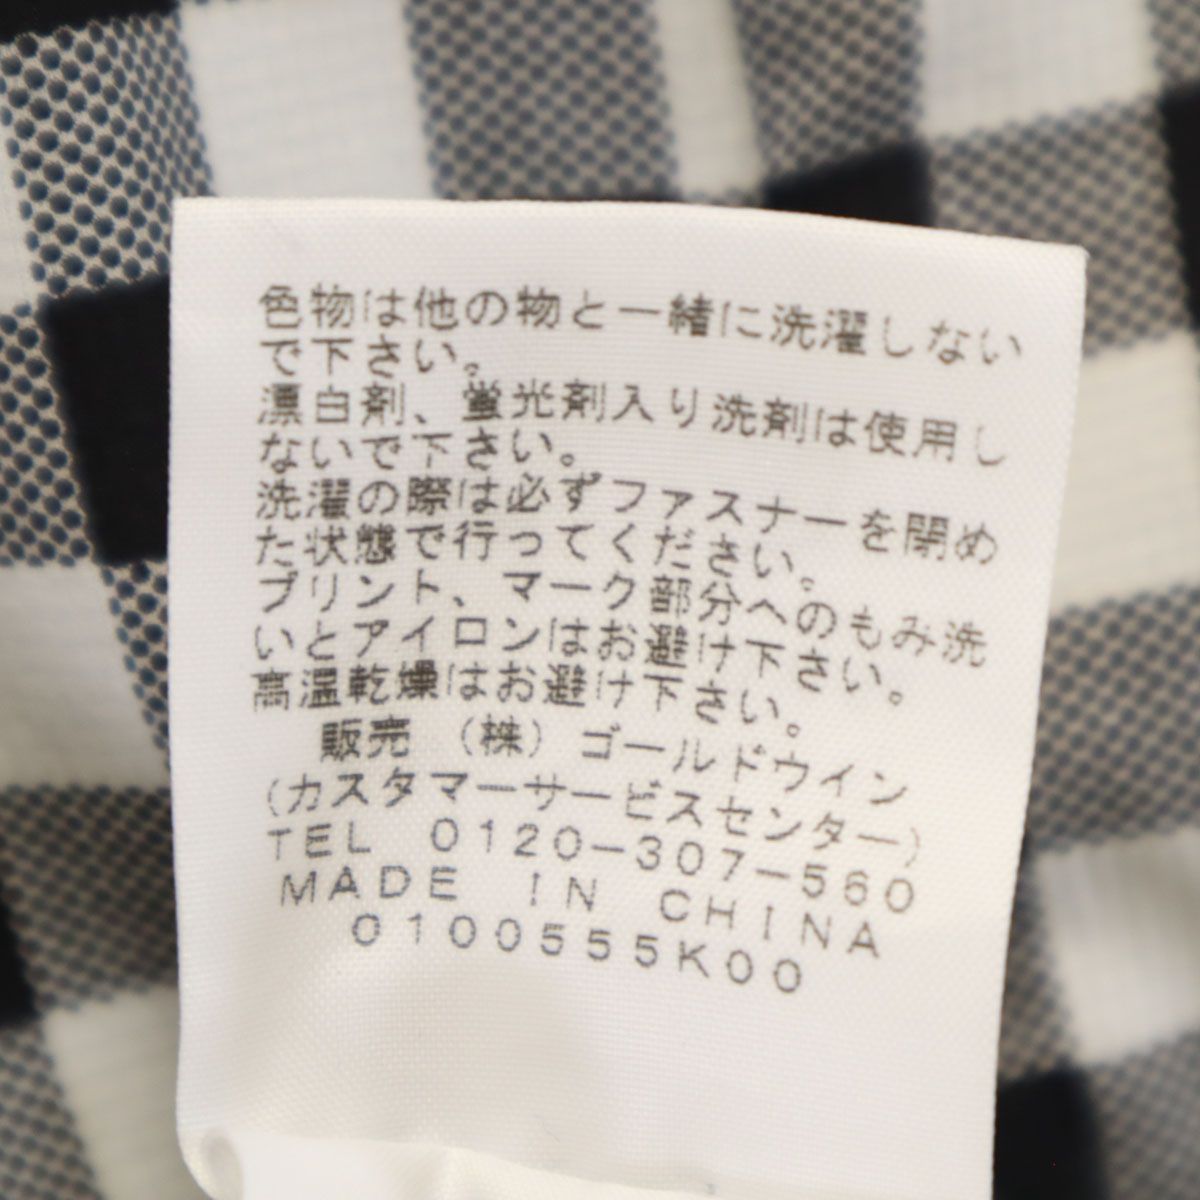 色物は他の物と一緒に洗濯しない
で下さい。
漂白剤、蛍光剤入り洗剤は使用し
ないで下さい。
洗濯の際は必ずファスナーを閉め
た状態で行ってください。
プリント、マーク部分へのもみ洗
いとアイロンはお避け下さい。
高温乾燥はお避け下さい。
販売 (株) ゴールドウイン
(カスタマーサービスセンター)
TEL 0120-307-560
MADE IN CHINA
0100555K00